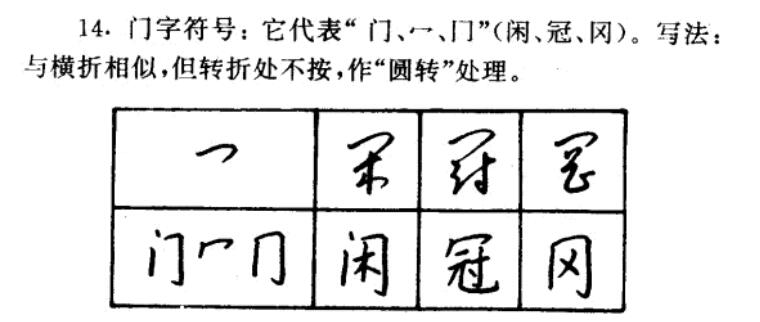 14. 门字符号：它代表“门、冖、冂”(闲、冠、冈)。写法：
与横折相似,但转折处不按,作“圆转”处理。
乛 闲 冠 冈
门 冖 冂 闲 冠 冈